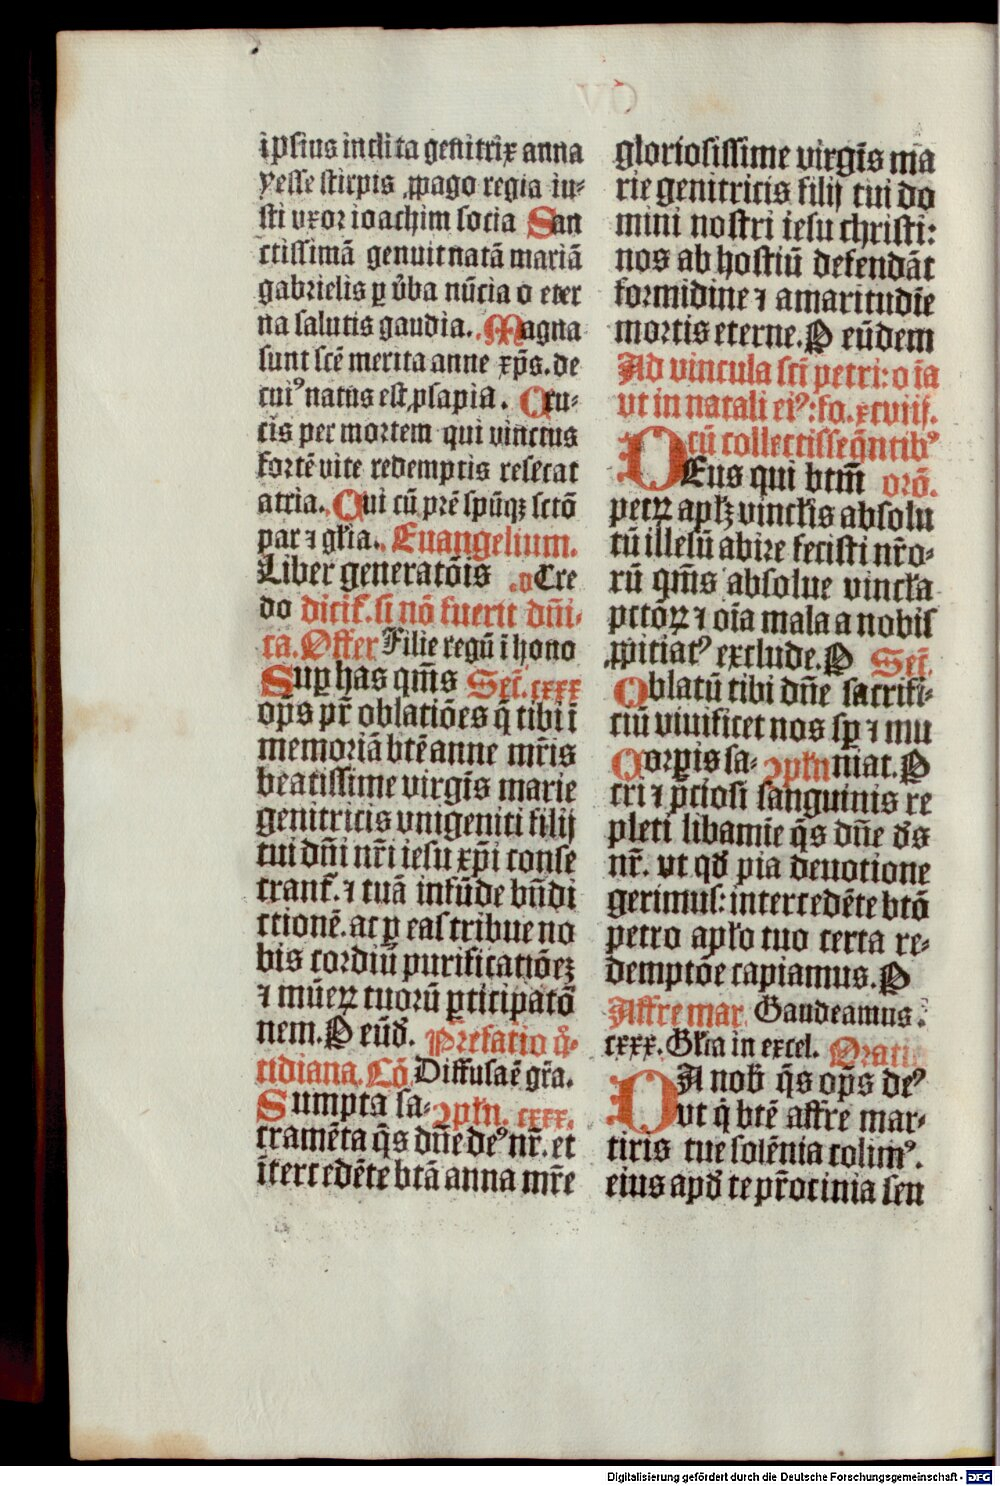 ipsius inclita genitrix anna
yesse stirpis ꝓpago regia iu-
sti vxor ioachim socia San
ctissimā genuit natā mariā
gabrielis ꝑ v̓ba nūcia o eter
na salutis gaudia. Magna
sunt scē merita anne xp̄s. de
cui⁹ natus est ꝓsapia. Cru-
cis per mortem qui vinctus
fortē vite redemptis reserat
atria. Qui cū pr̄e spūqꝫ sctō
par ⁊ gl̄ia. Euangelium.
Liber generatōis .v Cre
do dicit̄. si nō fuerit dn̄i-
ca. Offer Filie regū ī hono
Suꝑ has qm̄s Sec̄t. cxxx
op̄s pr̄ oblatiōes q̄ tibi ī
memoriā btē anne mr̄is
beatissime virgīs marie
genitricis vnigeniti filij
tui dn̄i nr̄i iesu xp̄i conse
crant̄. ⁊ tuā infūde bn̄di
ctionē. ac ꝑ eas tribue no
bis cordiū purificatiōeꝫ
⁊ mūeꝝ tuorū ꝑticipatō
nem. P eūd̄. Prefatio q̊-
tidiana. Cō Diffusa ē gr̄a.
Sumpta sa- ꝯpłn. cxxx.
cramēta q̄s dn̄e de⁹ nr̄. et
īterc edēte btā anna mr̄e
gloriosissime virgīs ma
rie genitricis filij tui do
mini nostri iesu christi:
nos ab hostiū defendāt
formidine ⁊ amaritudīe
mortis eterne. P eūdem
Ad vincula sct̄i petri: o īa
vt in natali ei⁹: fo. xcviij.
cū collectis seq̄ntib⁹
DEus qui btm̄ orō.
petꝝ aplꝫ vincl̄is absolu
tū illesū abire fecisti nr̄o-
rū qm̄s absolue vincl̄a
pctōꝝ ⁊ oīa mala a nobis
ꝓpitiat⁹ exclude. P Sec̄t.
Oblatū tibi dn̄e sacrifi-
ciū viuificet nos sꝑ ⁊ mu
Corꝑis sa- ꝯpłn niat. P
cri ⁊ p̄ciosi sanguinis re
pleti libamīe q̄s dn̄e d̄s
nr̄. vt qd̄ pia deuotione
gerimus: intercedēte btō
petro apl̄o tuo certa re-
demptōe capiamus. P
Affre mar. Gaudeamus.
cxxx. Gl̄ia in excel. Oratio
DA nob̄ q̄s op̄s de⁹
vt q̄ btē affre mar-
tiris tue solēnia colim⁹.
eius apd̄ te pr̄ocinia sen
Digitalisierung gefördert durch die Deutsche Forschungsgemeinschaft - DFG